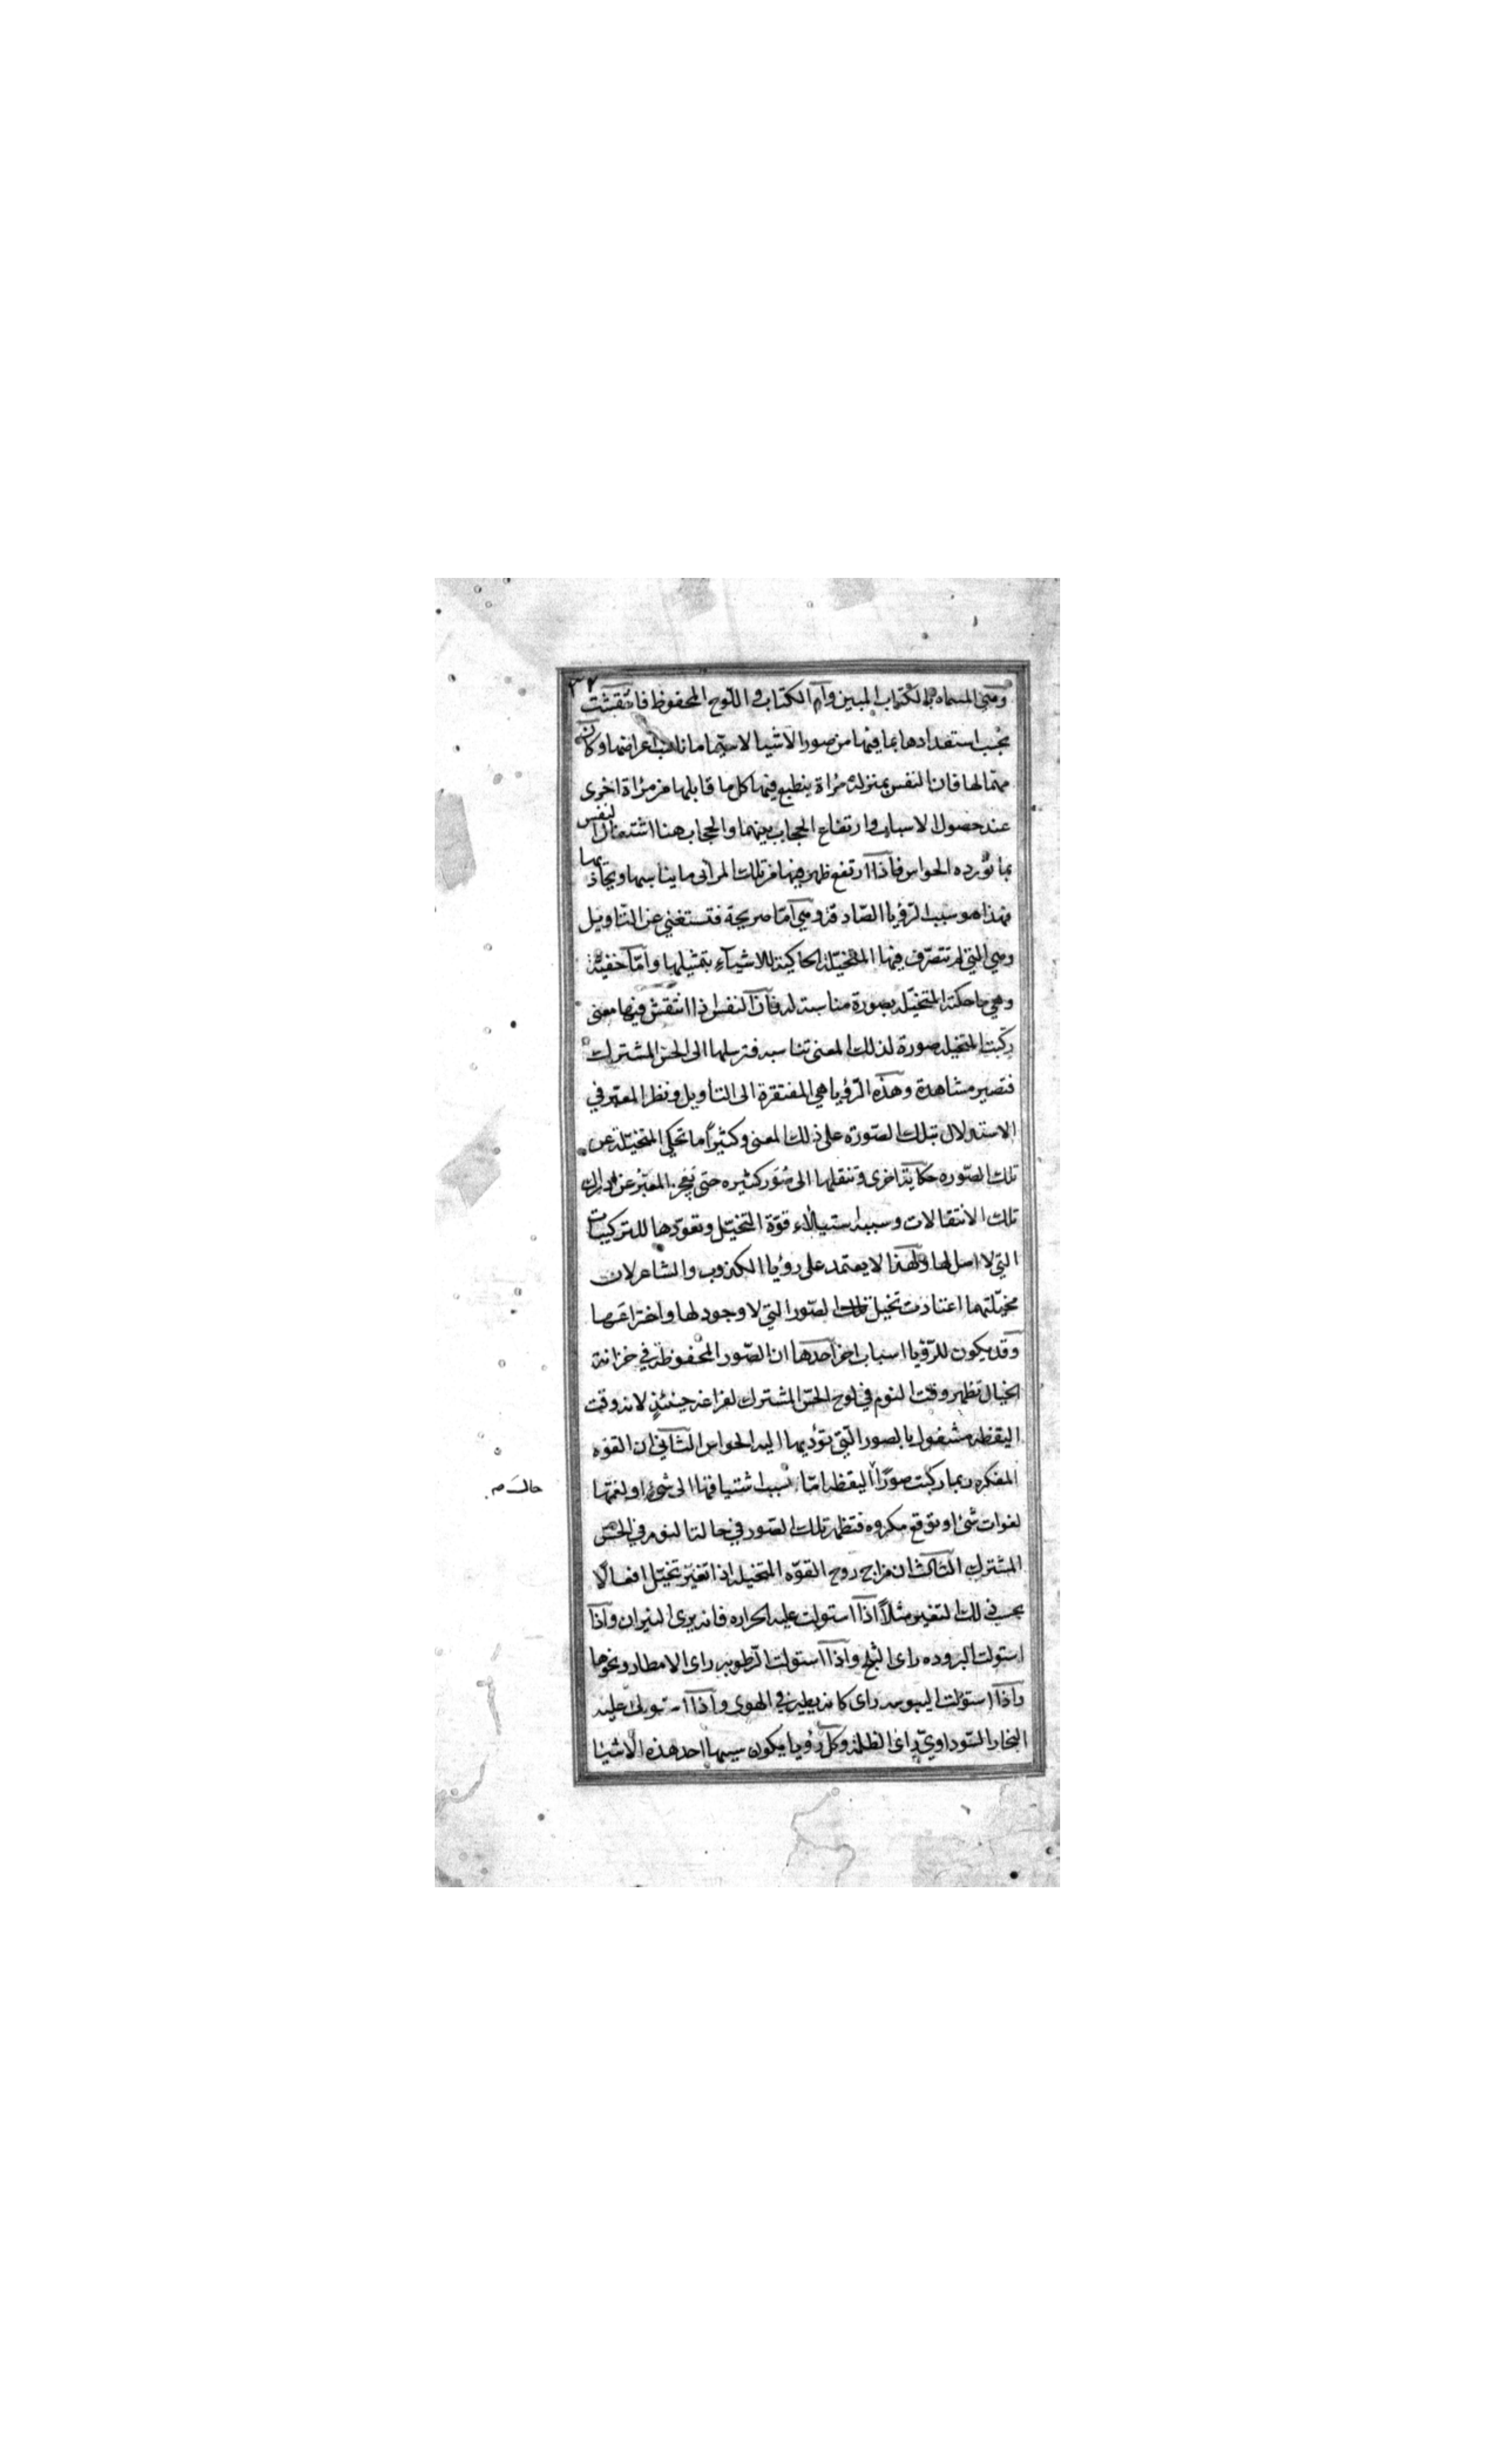 ٣٢
وهي المسماة بالكتاب المبين وام الكتاب واللوح المحفوظ فانتقشت
بحسب استعدادها بما فيها من صور الاشيا لا سيما ما ناسب اعراضها وكان
مهما لها فان النفس بمنزلة مراة ينطبع فيها كل ما قابلها من مراة اخرى
عند حصول الاسباب وارتفاع الحجاب بينهما والحجاب هنا اشتغال النفس
بما تورده الحواس فاذا ارتفع ظهر فيها من تلك المرائى ما يناسبها ويحاذيها
فهذا هو سبب الرؤيا الصادقة وهي اما صريحة فتستغني عن التاويل
وهي التي لم تتصرف فيها المتخيلة الحاكية للاشيآء بتمثيلها واما خفيّة
وهي ما حكته المتخيله بصورة مناسبة له فان النفس اذا انتقش فيها معنى
ركبت المتخيله صورة لذلك المعنى تناسبه فترسلها الى الحس المشترك
فتصير مشاهدة وهذه الرؤيا هي المفتقرة الى التأويل ونظر المعبر في
الاستدلال بتلك الصورة على ذلك المعنى وكثيراً ما تحكي المتخيلة عن
تلك الصوره حكاية اخرى وتنقلها الى صور كثيره حتى يعجز المعبر عن ادراك
تلك الانتقالات وسببه استيلاء قوة التخيل وتعودها للتركيبات
التي لا اصل لها ولهذا لا يعتمد على رؤيا الكذوب والشاعر لان
مخيلتهما اعتادت تخيل تلك الصور التي لا وجود لها واختراعها
وقد يكون للرؤيا اسباب اخر احدها ان الصور المحفوظة في خزانة
الخيال تظهر وقت النوم في لوح الحس المشترك لفراغه حينئذٍ لانه وقت
اليقظه مشغول بالصور التي تؤديها اليه الحواس الثاني ان القوه
المفكره ربما ركبت صوراً اليقظه اما بسبب اشتياقها الى شئ او لغمها
حالـ صـ
لفوات شئ او توقع مكروه فتظهر تلك الصور في حالة النوم في الحس
المشترك الثالث ان مزاج روح القوه المتخيله اذا تغير تخيل افعالا
بحسب ذلك التغير مثلاً اذا استولت عليه الحراره فانه يرى النيران واذا
استولت البروده راى الثلج واذا استولت الرطوبه راى الامطار ونحوها
واذا استولت اليبوسه راى كانه يطير في الهوى واذا استولى عليه
البخار السوداوي راى الظلمة وكل رؤيا يكون سببها احد هذه الاشيا